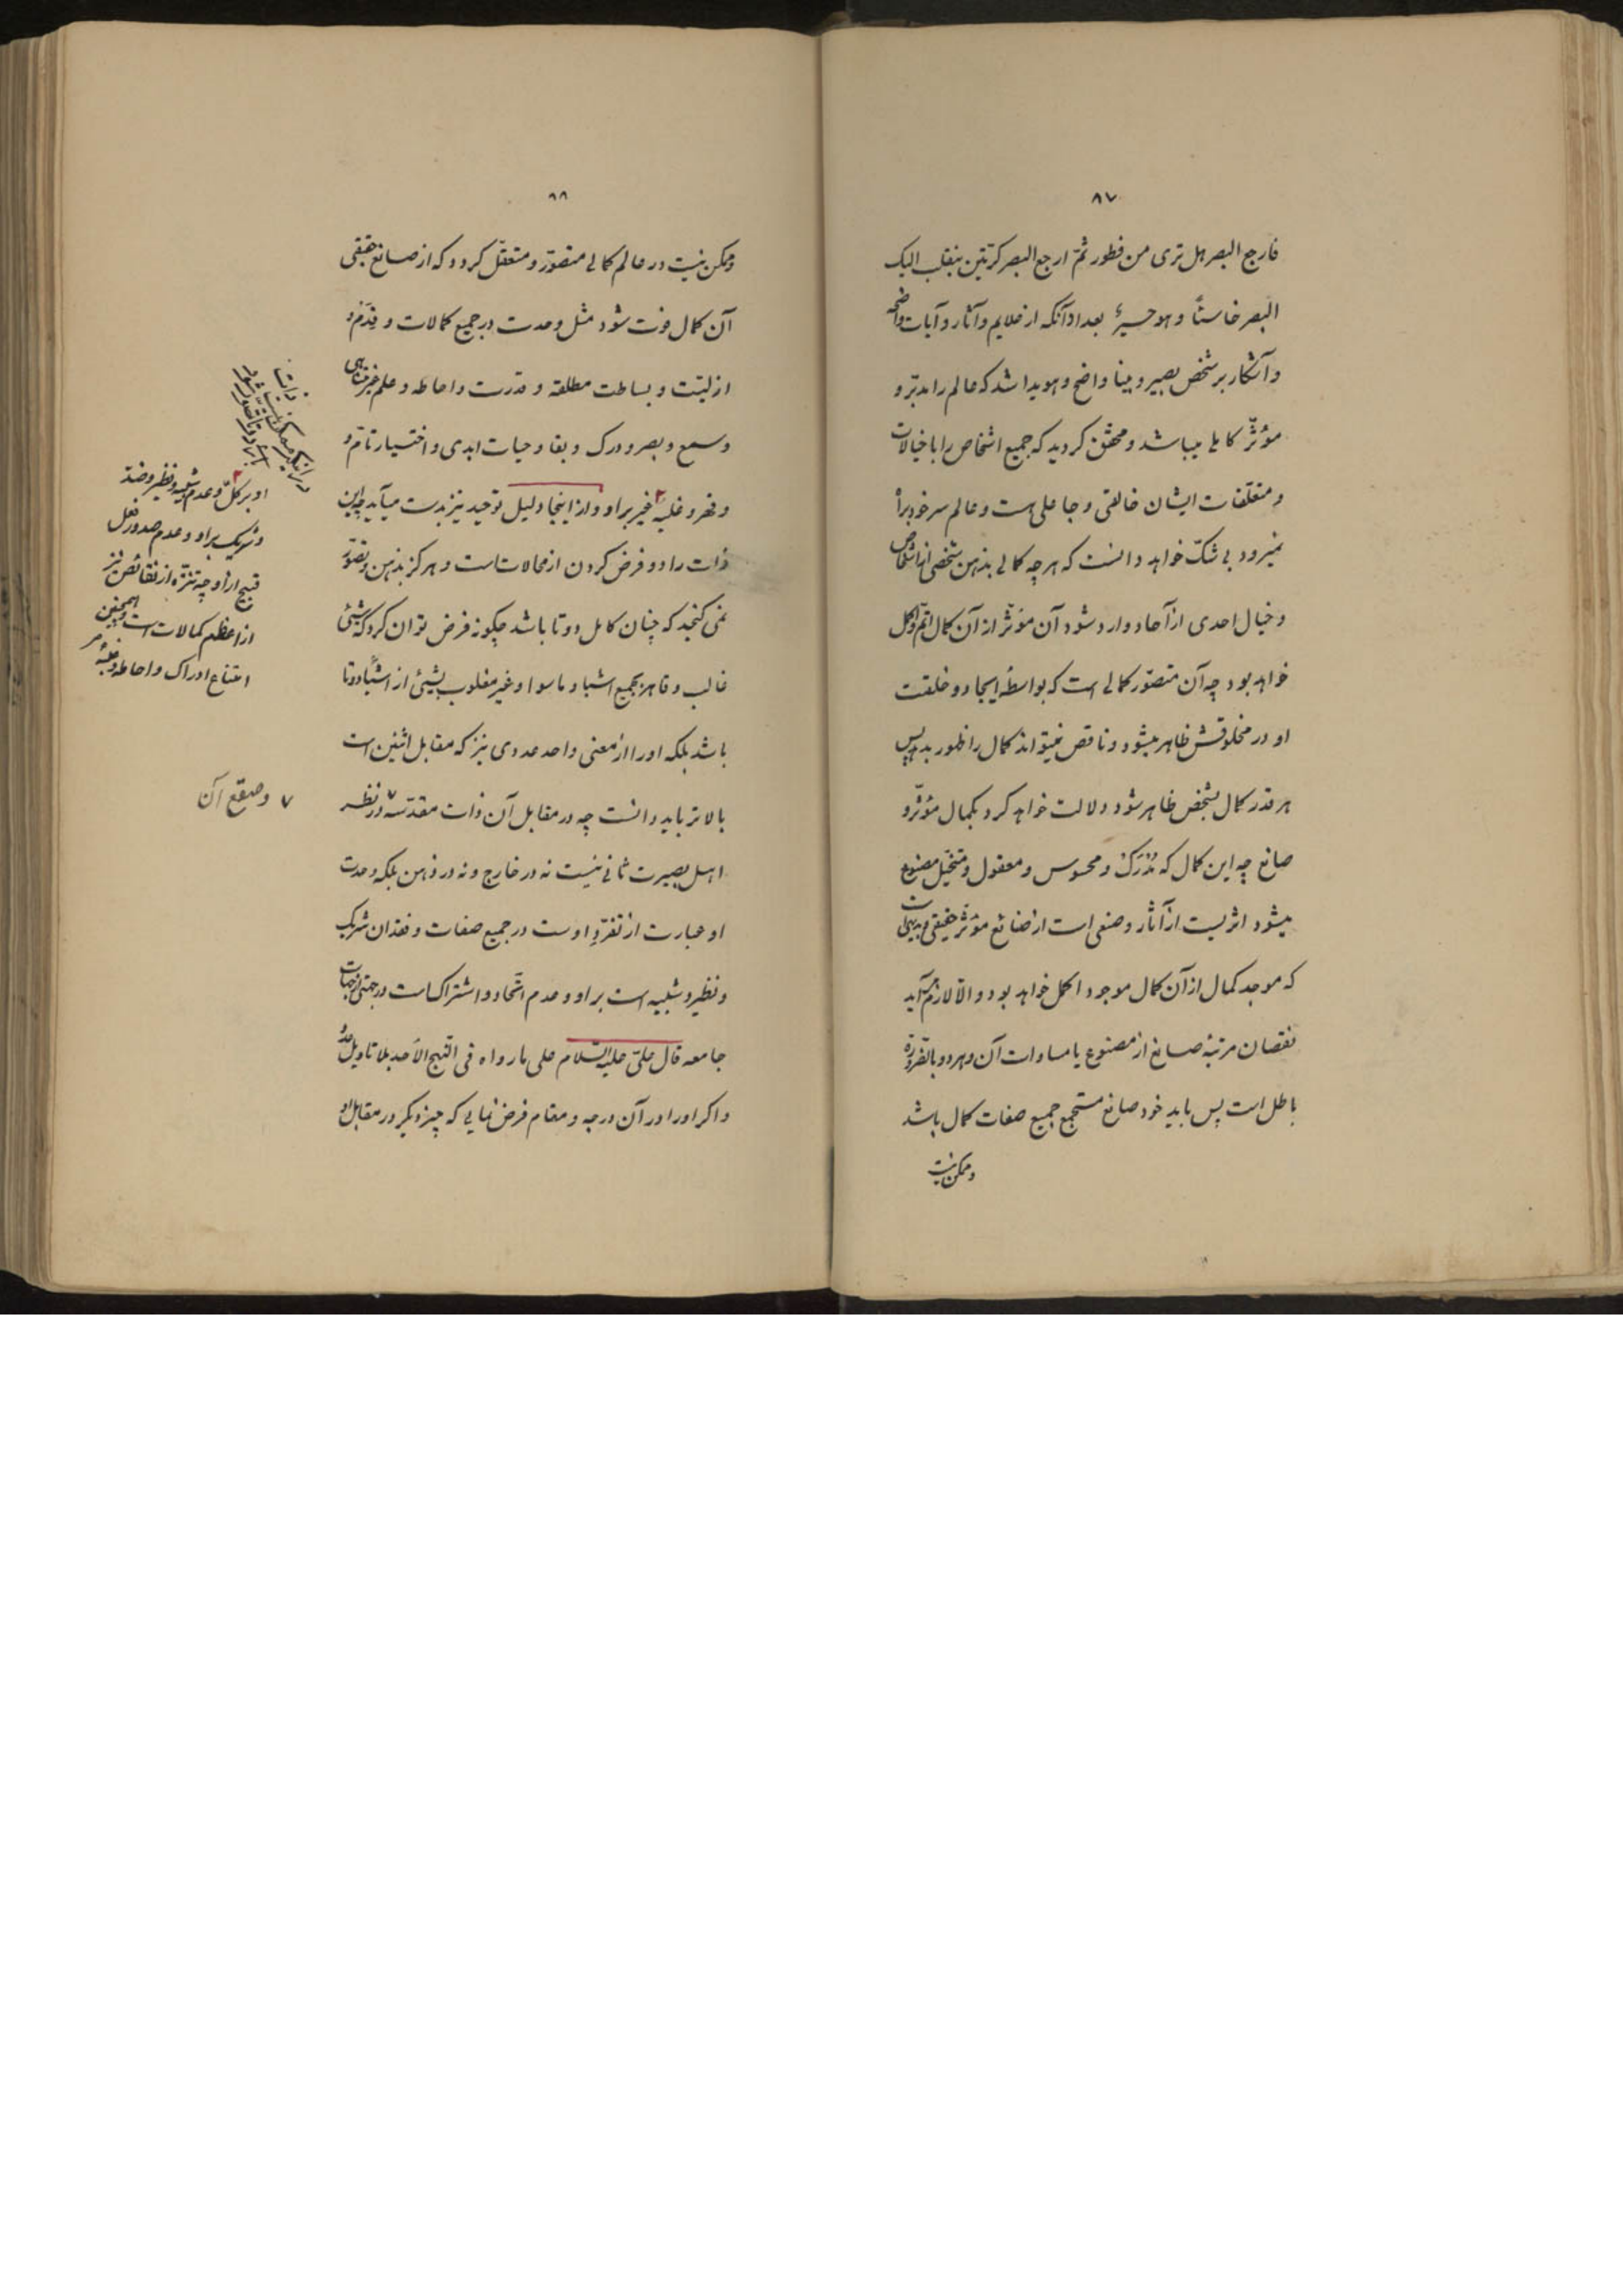 ۸۷
فارجع البصر هل تری من فطور ثمّ ارجع البصر کرّتین ینقلب الیک
البصر خاسئاً و هو حسیرٌ بعد از آنکه از علایم و آثار و آیات واضحه
و آشکار بر شخص بصیر و بینا واضح و هویدا شد که عالم را مدبّر و
مؤثّر کاملی میباشد و محقق گردید که جمیع اشخاص را با خیالات
و متعلقات ایشان خالقی و جاعلی هست و عالم سرخود براه
نمیرود بی شکّ خواهد دانست که هر چه کمالی بذهن شخصی از اشخاص
و خیال احدی از آحاد وارد شود آن مؤثّر از آن کمال اتمّ و اکمل
خواهد بود چه آن متصوّر کمالی است که بواسطهٔ ایجاد و خلقت
او در مخلوقش ظاهر میشود و ناقص نمیتواند کمال را ظهور بدهد پس
هر قدر کمال بشخص ظاهر شود دلالت خواهد کرد بکمال مؤثّر و
صانع چه این کمال که مُدرَک و محسوس و معقول و متخیّل مصنوع
میشود اثریست از آثار و صنعی است از صنائع مؤثّر حقیقی و بدیهی است
که موجد کمال از آن کمال موجود اکمل خواهد بود و الّا لازم آید
نقصان مرتبهٔ صانع از مصنوع یا مساوات آن و هر دو بالضّروره
باطل است پس باید خود صانع مستجمع جمیع صفات کمال باشد
و ممکن نیست
۸۸
و ممکن نیست در عالم کمالی متصوّر و متعقّل گردد که از صانع حقیقی
آن کمال فوت شود مثل وحدت در جمیع کمالات و قِدَم و
ازلیّت و بساطت مطلقه و قدرت و احاطه و علم غیر متناهی
و سمع و بصر و درک و بقا و حیات ابدی و اختیار تامّ و
و قهر و غلبهٔ غیر بر او و از اینجا دلیل توحید نیز بدست میآید چه این
ذات را دو فرض کردن از محالات است و هرگز بذهن و تصوّر
نمی گنجد که چنان کامل دو تا باشد چگونه فرض توان کرد که شیئی
غالب و قاهر بجمیع اشیاء و ماسوا و غیر مغلوب بشیئی از اشیاء دو تا
باشد بلکه او را از معنی واحد عددی نیز که مقابل اثنین است
بالاتر باید دانست چه در مقابل آن ذات مقدّسه ۷ در نظر
اهل بصیرت ثانی نیست نه در خارج و نه در ذهن بلکه وحدت
او عبارت از تفرّدِ اوست در جمیع صفات و فقدان شریک
و نظیر و شبیه است بر او و عدم اتّحاد و اشتراک است در جهتی از جهات
جامعه قال علیّ علیه السّلام علی ما رواه فی النّهج الأحد بلا تاویل عدد
و اگر او را در آن درجه و مقام فرض نمایی که چیز دیگر در مقابل او
او بر کلّ و عدم شبیه و نظیر و ضدّ
و شریک بر او و عدم صدور فعل
قبیح از او چه تنزّه از نقائص نیز
از اعظم کمالات است و همچنین
امتناع ادراک و احاطه و غلبهٔ
۷ و صقع آن